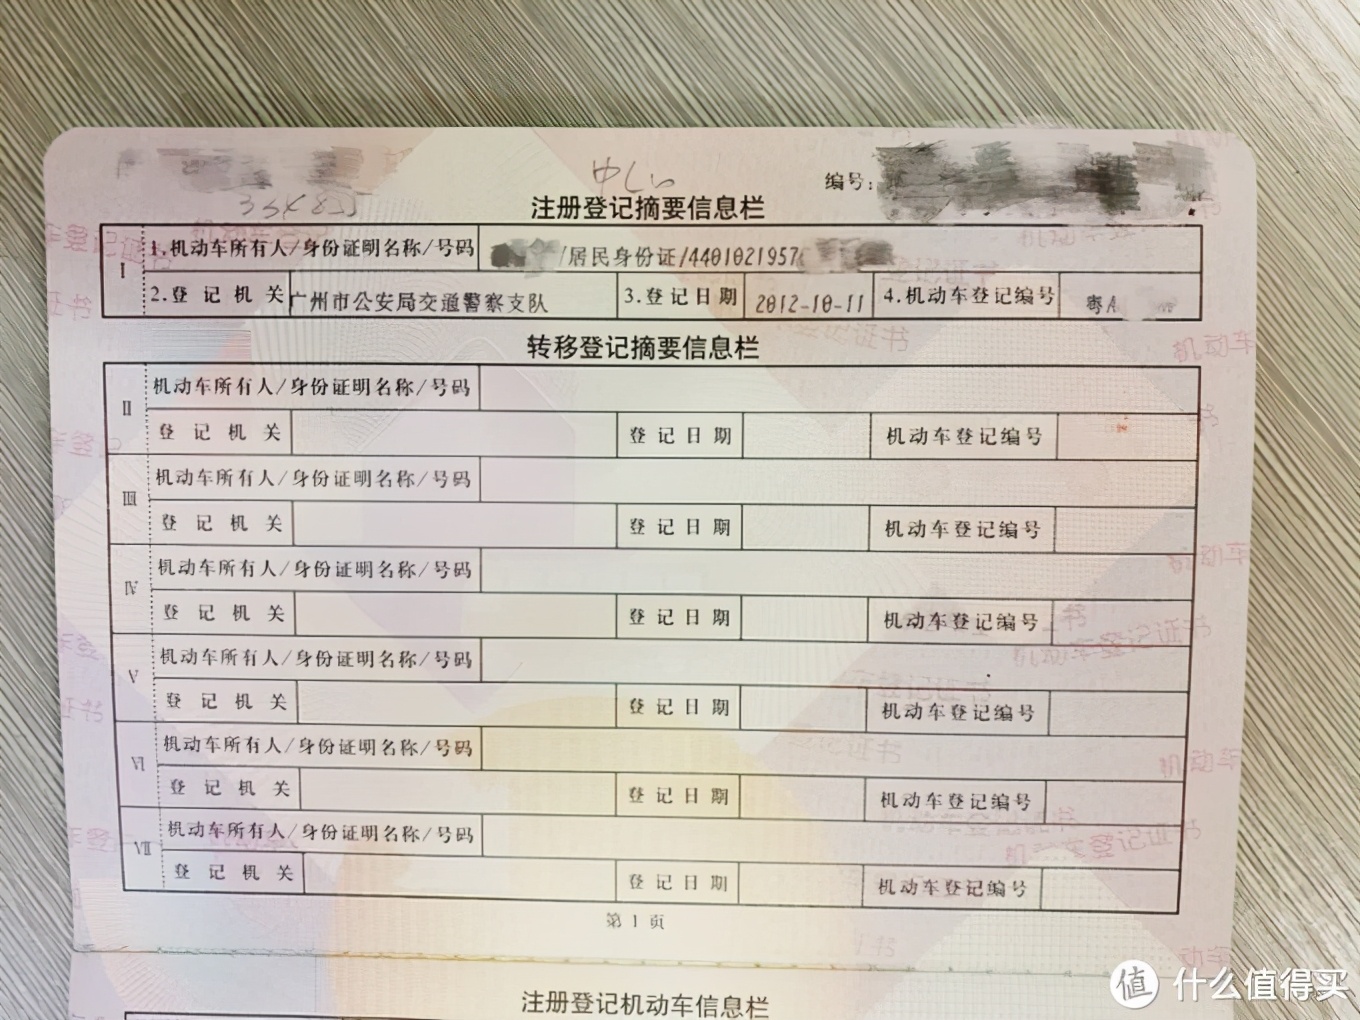 编号:
注册登记摘要信息栏
Ⅰ 1.机动车所有人/身份证明名称/号码 /居民身份证/4401021957
2.登记机关 广州市公安局交通警察支队 3.登记日期 2012-10-11 4.机动车登记编号 粤A
转移登记摘要信息栏
Ⅱ 机动车所有人/身份证明名称/号码
登记机关 登记日期 机动车登记编号
Ⅲ 机动车所有人/身份证明名称/号码
登记机关 登记日期 机动车登记编号
Ⅳ 机动车所有人/身份证明名称/号码
登记机关 登记日期 机动车登记编号
Ⅴ 机动车所有人/身份证明名称/号码
登记机关 登记日期 机动车登记编号
Ⅵ 机动车所有人/身份证明名称/号码
登记机关 登记日期 机动车登记编号
Ⅶ 机动车所有人/身份证明名称/号码
登记机关 登记日期 机动车登记编号
第1页
注册登记机动车信息栏
值 什么值得买